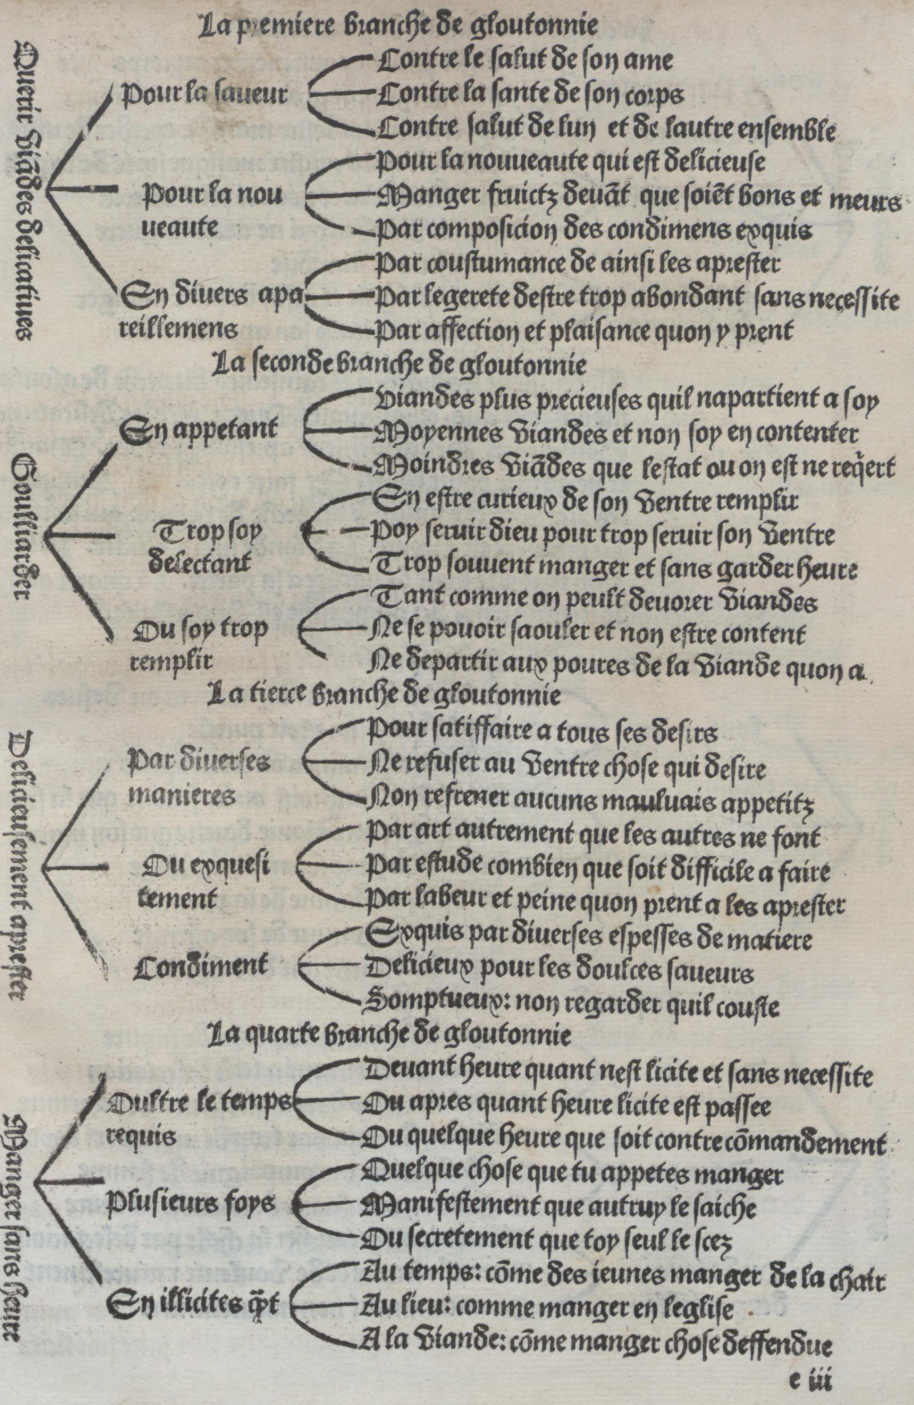 La premiere branche de gloutonnie
Querir viādes delicatiues
Pour la saueur
Contre le salut de son ame
Contre la sante de son corps
Contre salut de lun et de lautre ensemble
Pour la nou
ueaute
Pour la nouueaute qui est delicieuse
Manger fruictz deuāt que soiēt bons et meurs
Par composicion des condimens exquis
En diuers apa
reillemens
Par coustumance de ainsi les aprester
Par legerete destre trop abondant sans necessite
Par affection et plaisance quon y prent
La seconde branche de gloutonnie
Goulliarder
En appetant
Viandes plus precieuses quil napartient a soy
Moyennes viandes et non soy en contenter
Moindres viādes que lestat ou on est ne reqert
Trop soy
delectant
En estre curieux de son ventre remplir
Poy seruir dieu pour trop seruir son ventre
Trop souuent manger et sans garder heure
Ou soy trop
remplir
Tant comme on peult deuorer viandes
Ne se pouoir saouler et non estre content
Ne departir aux poures de la viande quon a
La tierce branche de gloutonnie
Delicieusement aprester
Par diuerses
manieres
Pour satiffaire a tous ses desirs
Ne refuser au ventre chose qui desire
Non refrener aucuns mauluais appetitz
Ou exquesi
tement
Par art autrement que les autres ne font
Par estude combien que soit difficile a faire
Par labeur et peine quon prent a les aprester
Condiment
Exquis par diuerses espesses de matiere
Delicieux pour les doulces saueurs
Somptueux: non regarder quil couste
La quarte branche de gloutonnie
Manger sans heure
Oultre le temps
requis
Deuant heure quant nest licite et sans necessite
Ou apres quant heure licite est passee
Ou quelque heure que soit contre cōmandement
Plusieurs foys
Quelque chose que tu appetes manger
Manifestement que autruy le saiche
Ou secretement que toy seul le scez
En illicites
Au temps: cōme des ieunes manger de la chair
Au lieu: comme manger en leglise
A la viande: cōme manger chose deffendue
e iii